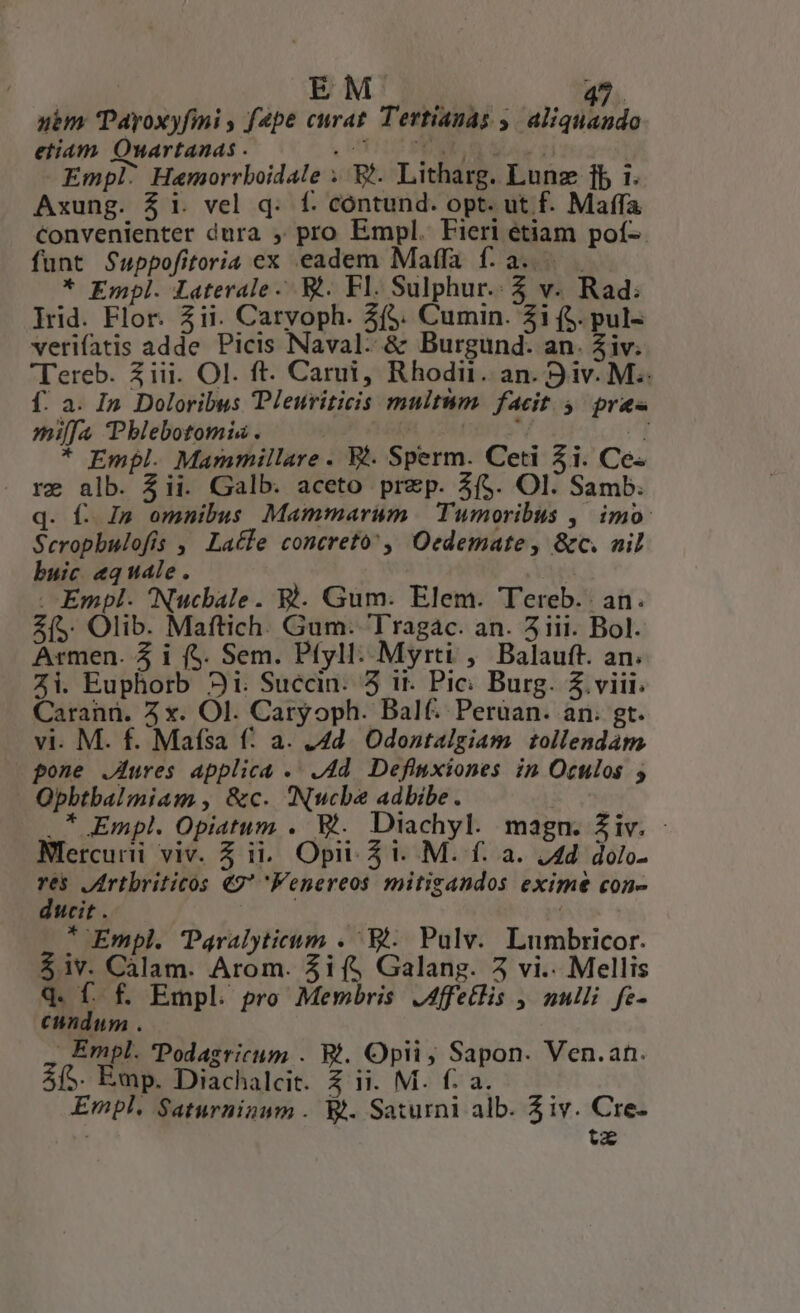 EM 47
nem Paroxysmi, sæpe curat Tertianas, aliquando
etiam Quartanas.
Empl. Hemorrhoidale: ℞. Litharg. Lunæ ℔ i.
Axung. ℥ i. vel q. ſ. contund. opt. ut f. Maſſa
convenienter dura, pro Empl. Fieri etiam poſ-
ſunt Suppoſitoria ex eadem Maſſa ſ. a.
* Empl. Laterale. ℞. Fl. Sulphur. ℥ v. Rad.
Irid. Flor. ℥ii. Caryoph. ℥ß. Cumin. ℥i ß. pul-
veriſatis adde Picis Naval. & Burgund. an. ℥iv.
Tereb. ℥iii. Ol. ſt. Carui, Rhodii. an. ℈iv. M.
ſ. a. In Doloribus Pleuriticis multùm facit, præ-
miſſa Phlebotomia.
* Empl. Mammillare. ℞. Sperm. Ceti ℥i. Ce-
ræ alb. ℥ii. Galb. aceto præp. ℥ß. Ol. Samb.
q. ſ. In omnibus Mammarum Tumoribus, imo
Scrophuloſis, Lacte concreto, Oedemate, &c. nil
huic æquale.
Empl. Nuchale. ℞. Gum. Elem. Tereb. an.
℥ß. Olib. Maſtich. Gum. Tragac. an. ʒiii. Bol.
Armen. ℥ i ß. Sem. Pſyll. Myrti, Balauſt. an.
ʒi. Euphorb ℈i. Succin. ℥ ii. Pic. Burg. ℥.viii.
Carann. ʒx. Ol. Caryoph. Balſ. Peruan. an. gt.
vi. M. f. Maſsa ſ. a. Ad Odontalgiam tollendam
pone Aures applica. Ad Defluxiones in Oculos,
Ophthalmiam, &c. Nuchæ adhibe.
* Empl. Opiatum. ℞. Diachyl. magn. ℥iv.
Mercurii viv. ℥ ii. Opii ℥i. M. ſ. a. Ad dolo-
res Arthriticos & Venereos mitigandos eximè con-
ducit.
* Empl. Paralyticum. ℞. Pulv. Lumbricor.
℥ iv. Calam. Arom. ℥iß Galang. ʒ vi. Mellis
q. ſ. f. Empl. pro Membris Affectis, nulli ſe-
cundum.
Empl. Podagricum. ℞. Opii, Sapon. Ven. an.
℥ß. Emp. Diachalcit. ℥ ii. M. ſ. a.
Empl. Saturninum. ℞. Saturni alb. ℥iv. Cre-
tæ